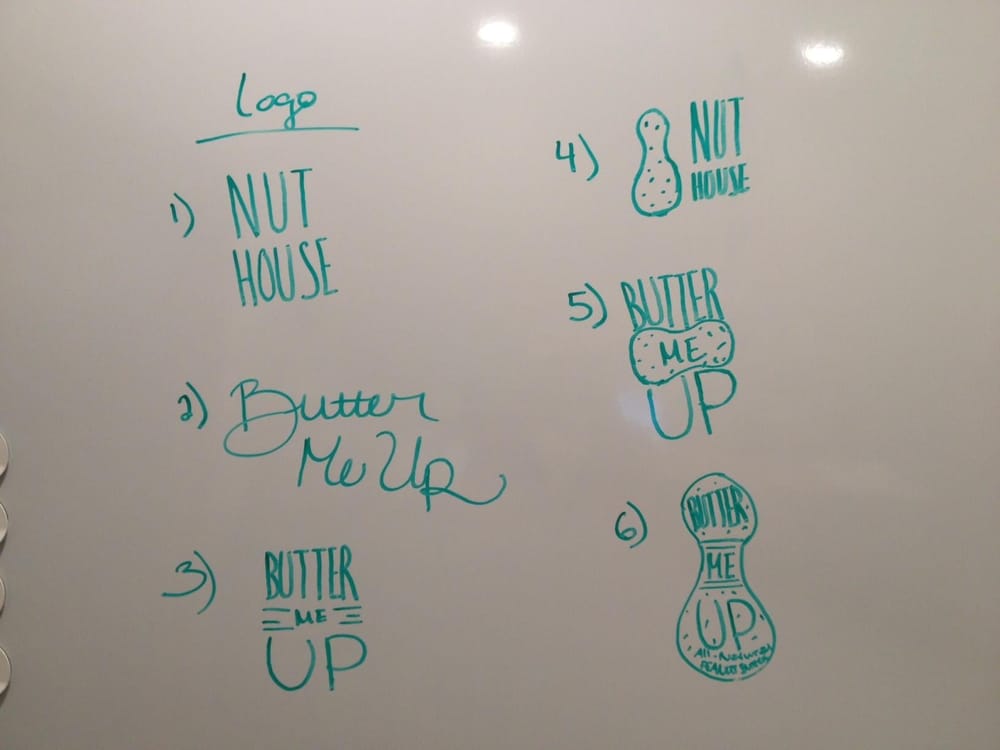 Logo
1) NUT
HOUSE
2) Butter
Me Up
3) BUTTER
ME
UP
4) NUT
HOUSE
5) BUTTER
ME
UP
6) BUTTER
ME
UP
All-Natural
PEANUT BUTTER